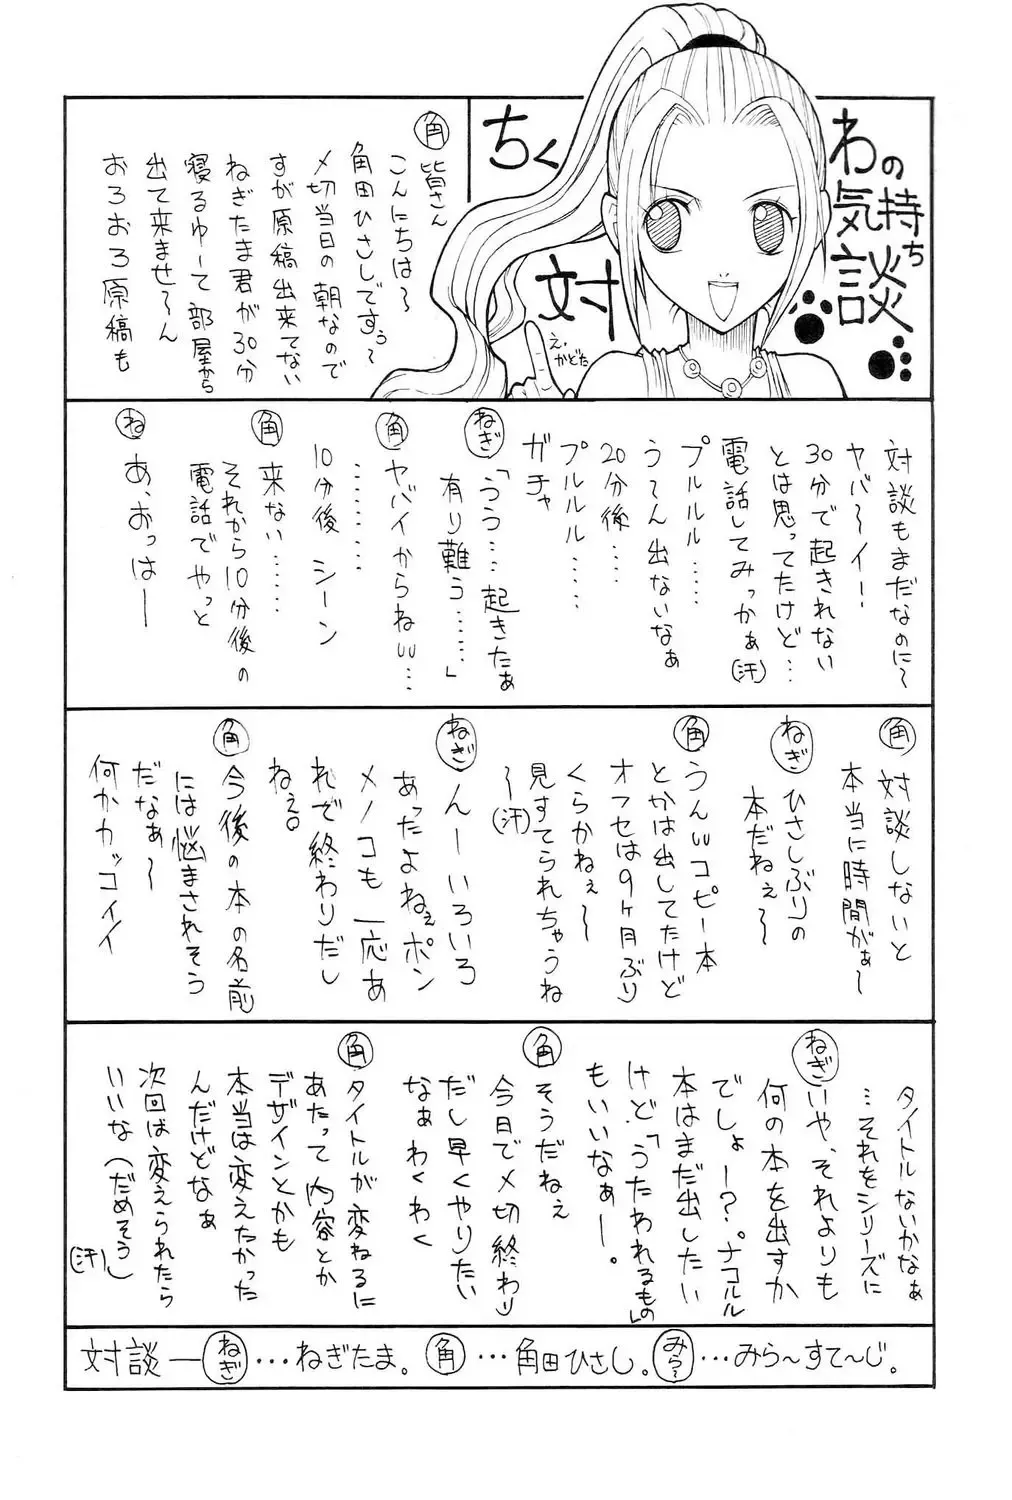 ちくわの気持ち
対談
え。かどた
角
皆さん
こんにちは〜
角田ひさしですぅ〜
〆切当日の朝なので
すが原稿出来てない
ねぎたま君が30分
寝るゆーて部屋から
出て来ませ〜ん
おろおろ原稿も
対談もまだなのに〜
ヤバ〜イ!
30分で起きれない
とは思ってたけど…
電話してみっかぁ(汗)
プルルル……
う〜ん出ないなぁ
20分後…
プルルル……
ガチャ
ねぎ「うう…起きたぁ
有り難う……」
角 ヤバイからねw…
………
10分後 シーン
角 来ない……
それから10分後の
電話でやっと
ね あ、おっはー
角 対談しないと
本当に時間がぁ〜
ねぎ ひさしぶりの
本だねぇ〜
角 うんwコピー本
とかは出してたけど
オフセは9ヶ月ぶり
くらかねぇ〜
見すてられちゃうね
〜(汗)
ねぎ んーいろいろ
あったよねぇポン
メノコも一応あ
れで終わりだし
ねぇ。
角 今後の本の名前
には悩まされそう
だなぁ〜
何かカッコイイ
タイトルないかなぁ
…それをシリーズに
ねぎ いや、それよりも
何の本を出すか
でしょー?ナコルル
本はまだ出したい
けど「うたわれるもの」
もいいなぁー。
角 そうだねぇ
今日で〆切終わり
だし早くやりたい
なぁわくわく
角 タイトルが変わるに
あたって内容とか
デザインとかも
本当は変えたかった
んだけどなぁ
次回は変えられたら
いいな(だめそう)
(汗)
対談―ねぎ…ねぎたま。角…角田ひさし。みら〜…みら〜すて〜じ。